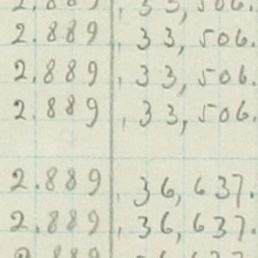 2.889 , 33, 506.
2.889 , 33, 506.
2.889 , 33, 506.
2.889 , 33, 506.
2.889 , 36, 637.
2.889 , 36, 637.